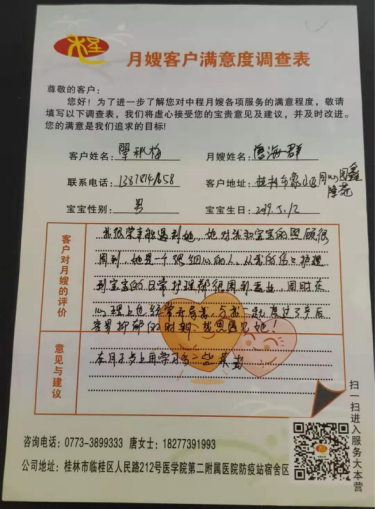 月嫂客户满意度调查表
尊敬的客户：
您好！为了进一步了解您对中程月嫂各项服务的满意程度，敬请
填写以下调查表，我们将虚心接受您的宝贵意见及建议，并及时改进。
您的满意是我们追求的目标！
客户姓名： 月嫂姓名：唐海群
联系电话： 客户地址：
宝宝性别：男 宝宝生日：
客户对月嫂的评价
我很荣幸能遇到她，她对我和宝宝的照顾很
周到，她是一个很细心的人，从我的伤口护理
到宝宝的日常护理都很周到，同时在
心理上也经常开导我，与我一起度过了产后
抑郁的时刻，
意见与建议
在月子
扫一扫进入服务大本营
咨询电话：0773-3899333 唐女士：18277391993
公司地址：桂林市临桂区人民路212号医学院第二附属医院防疫站宿舍区